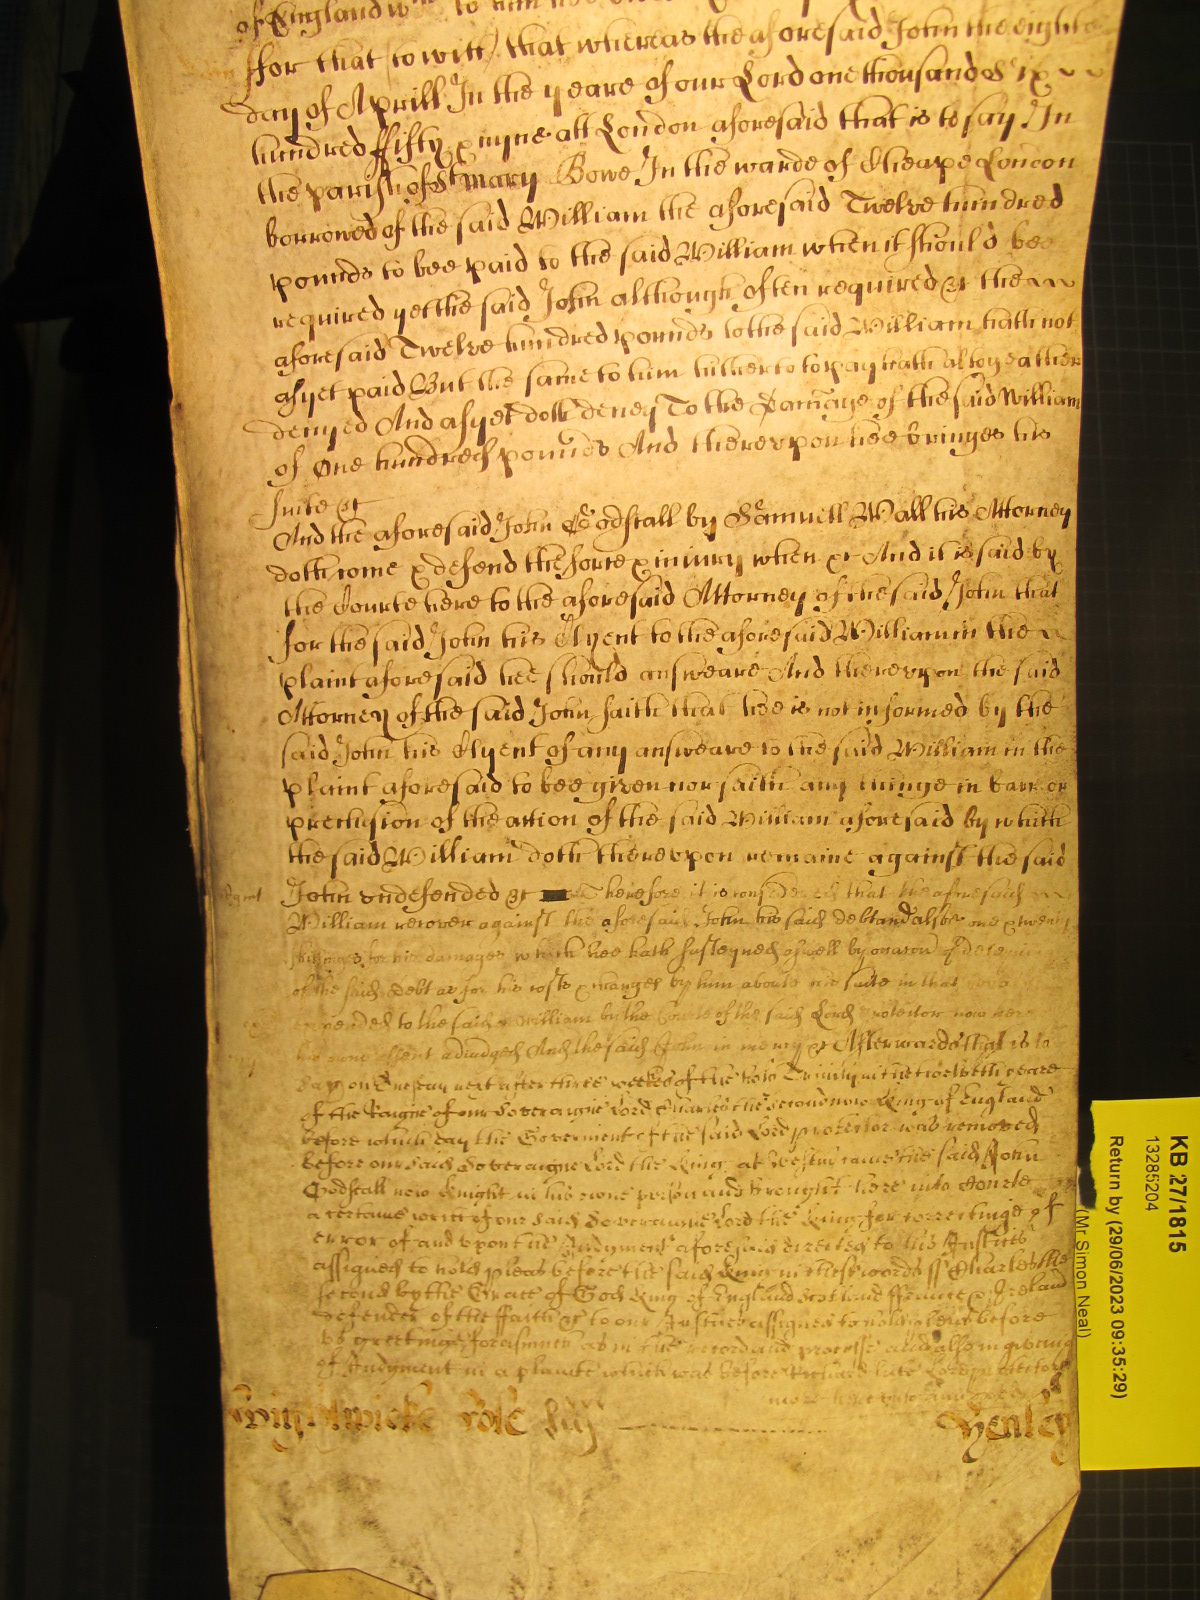 of England w to him
ffor that (to witt) that whereas the aforesaid John the eight
day of Aprill In the yeare of our Lord one thousand Six
hundred ffifty & nyne att London aforesaid that is to say In
the parish of St Mary Bowe In the warde of Cheape London
borrowed of the said William the aforesaid Twelve hundred
pounds to bee paid to the said William when it should bee
required yet the said John although often required &c the
aforesaid Twelve hundred pounds to the said William hath not
as yet paid But the same to him hitherto to pay hath altogeather
denyed And as yet doth deney To the Damage of the said William
of One hundred pounds And therevpon hee bringes his
suite &c
And the aforesaid John Godscall by Samuell Wall his Attorney
doth come & defend the force & iniury when &c And it is said by
the Courte here to the aforesaid Attorney of the said John that
for the said John his Clyent to the aforesaid William in the
plaint aforesaid hee should answeare And therevpon the said
Attorney of the said John saith that hee is not informed by the
said John his Clyent of any answeare to the said William in the
plaint aforesaid to bee given nor saith any thinge in barr or
preclusion of the action of the said William aforesaid by which
the said William doth therevpon remaine against the said
John vndefended &c Therefore it is considered that the aforesaid
William recover against the aforesaid John his said debt and alsoe one & twenty
for his damages which hee hath susteyned aswell by occasion of
of the said debt as for his costs & charges by him aboute his suite in that
expended to the said William by the Courte of the said Lord Protector now here
his owne assent adiudged And the said John in mercy &c Afterwards that is to
say on next after three weekes of the holy Trinity in the twelveth yeare
of the Raigne of our Soveraigne Lord Charles the second now King of England
before which day the Goverment of the said Lord protector was removed
before our said Soveraigne Lord the King at Westm came the said John
Godscall now Knight in his owne person and brought here into Courte
a certaine writt of our said Soveraigne Lord the King for correctinge of
error of and vpon the Iudgment aforesaid directed to his Justices
assigned to hold pleas before the said King in these words ss Charles the
second by the Grace of God King of England Scotland ffrance & Ireland
defender of the ffaith &c to our Justices assigned to hold pleas before
vs greetinge fforasmuch as in the record and processe and also in giving
of Iudgment in a plainte which was before Richard late Lord protector
more
Rol
Henley
KB 27/1815
13285204
Return by (29/06/2023 09:35:29)
(Mr Simon Neal)